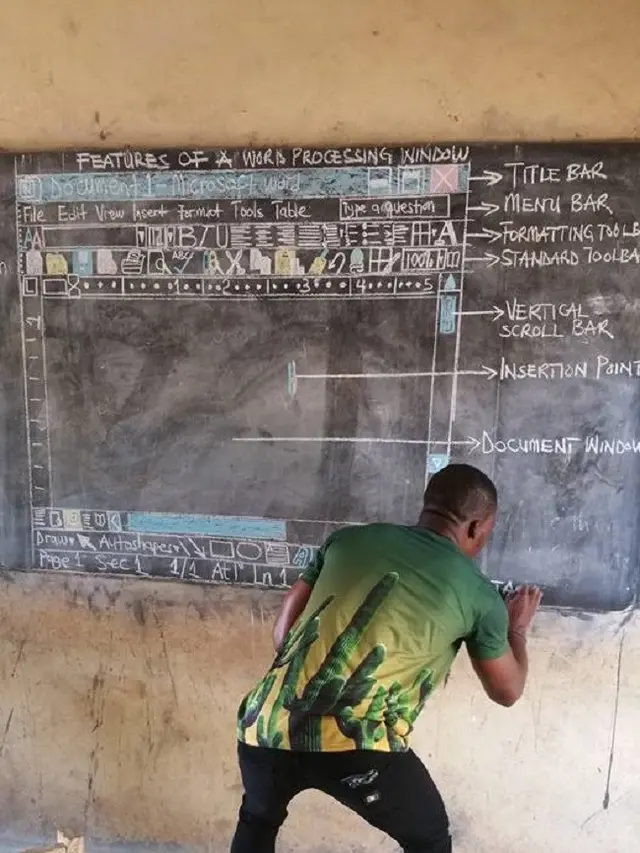 FEATURES OF A WORD PROCESSING WINDOW
Document 1 - Microsoft word
TITLE BAR
File Edit View Insert Format Tools Table
Type a question
MENU BAR
AA
12
B I U
A
FORMATTING TOOLB
ABC
100%
STANDARD TOOLBA
8
1 2 3 4 5
VERTICAL
SCROLL BAR
1
INSERTION POINT
DOCUMENT WINDOW
Draw Autoshapes
Page 1 Sec 1 1/1 At 1" Ln 1